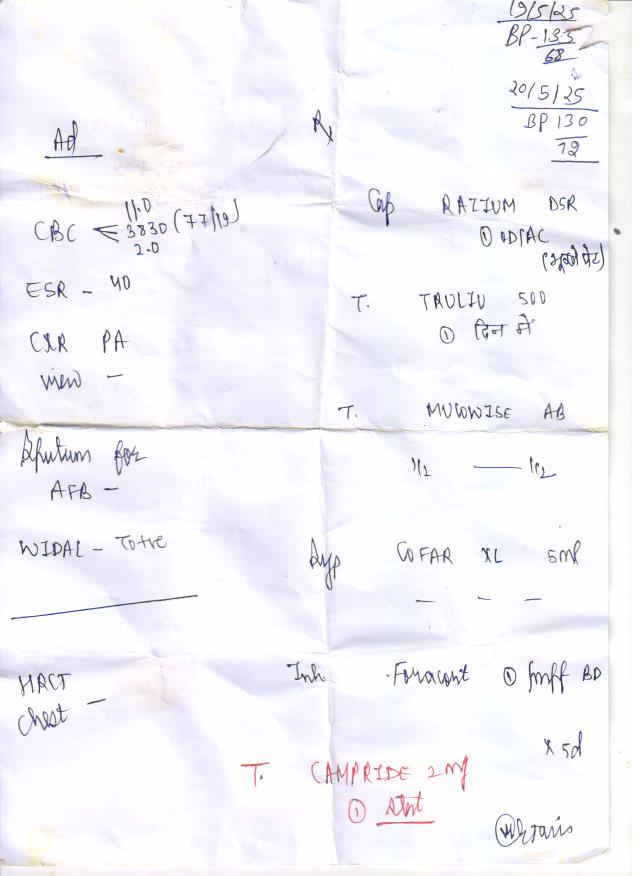 19/5/25
BP - 133
68
20/5/25
BP 130
72
Ad
Rx
CBC < 11.0
3830 (77/19)
2.0
ESR - 40
CXR PA
view -
Sputum for
AFB -
WIDAL - To+ve
HRCT
chest -
Cap RAZIUM DSR
① ODAC
(भूखे पेट)
T. TRULIV 500
① दिन में
T. MUCOWISE AB
1/2 — 1/2
Syp COFAR XL 5ml
— — —
Inh Foracort ① puff BD
x 5d
T. CAMPRIDE 2 mg
① Stat